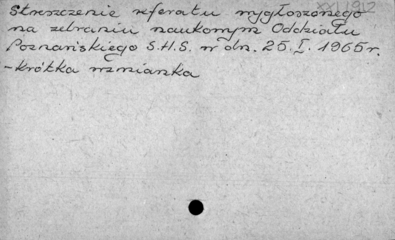 XXI/912
Streszczenie referatu wygłoszonego
na zebraniu naukowym Oddziału
Poznańskiego S.H.S. w dn. 25.I.1965r.
-krótka wzmianka